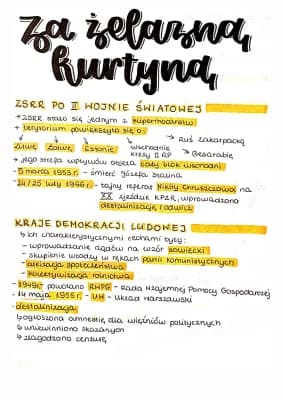 za żelazną
kurtyną
ZSRR PO II WOJNIE ŚWIATOWEJ
→ ZSRR stało się jednym z supermocarstw
→ terytorium powiększyło się o:
Litwę, Łotwę, Estonię, wschodnie kresy II RP, Besarabię, Ruś Zakarpacką
→ jego strefa wpływów objęła cały blok wschodni
- 5 marca 1953 r. - śmierć Józefa Stalina
- 24/25 luty 1956 r. - tajny referat Nikity Chruszczowa na
XX zjeździe KPZR, wprowadzono
destalinizację, i odwilż
KRAJE DEMOKRACJI LUDOWEJ
↳ ich charakterystycznymi cechami były:
- wprowadzanie rządów na wzór sowiecki
- skupienie władzy w rękach partii komunistycznych
- ateizacja społeczeństwa
- kolektywizacja rolnictwa
- 1949r. powołano RWPG - Rada Wzajemnej Pomocy Gospodarczej
- 14 maja 1955 r. - UW - Układ Warszawski
- destalinizacja
↳ ogłoszono amnestię dla więźniów politycznych
↳ uniewinniono skazanych
↳ złagodzono cenzurę